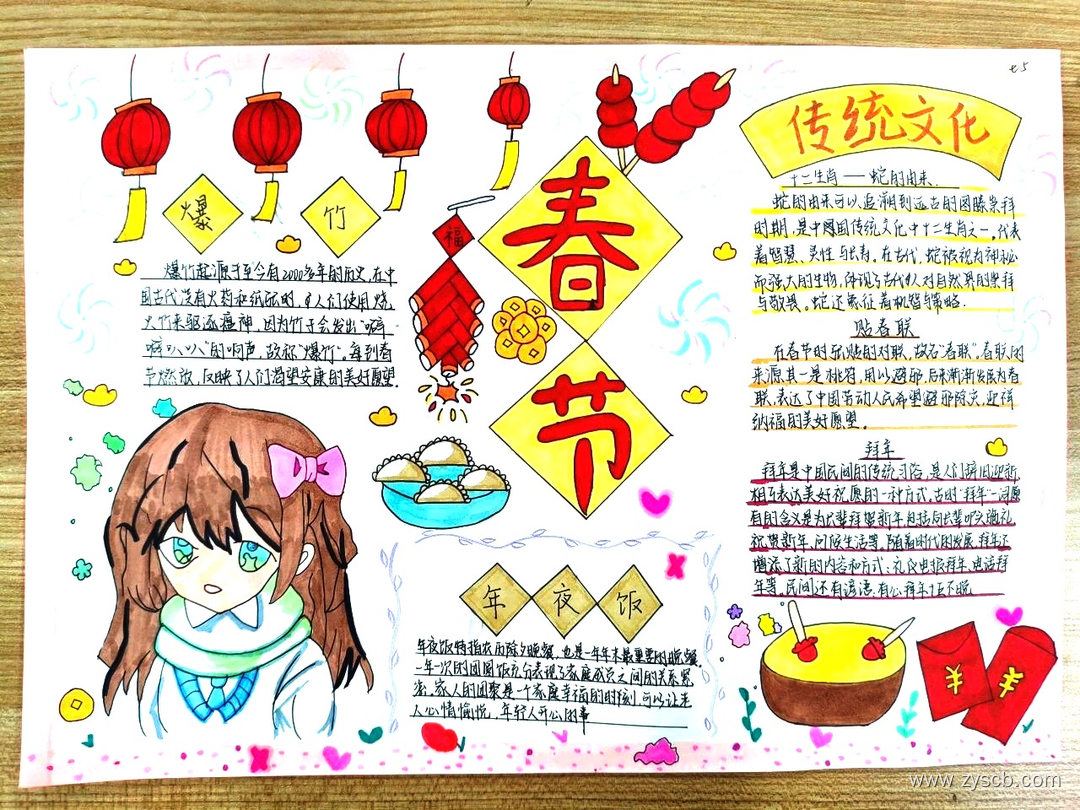 七5
传统文化
春
节
福
爆
竹
爆竹起源于至今有2000多年的历史,在中
国古代没有火药和纸张时,人们使用烧
火竹来驱逐瘟神,因为竹子会发出"噼
啪叭叭"的响声,故称"爆竹"。每到春
节燃放,反映了人们渴望安康的美好愿望。
十二生肖——蛇的由来.
蛇的由来可以追溯到远古的图腾崇拜
时期,是中国传统文化中十二生肖之一,代表
着智慧、灵性与长寿。在古代,蛇被视为神秘
而强大的生物,体现了古代人对自然界的崇拜
与敬畏。蛇还象征着机智与策略.
贴春联
在春节时所贴的对联,故名"春联"。春联的
来源其一是桃符,用以避邪,后来渐渐发展为春
联,表达了中国劳动人民希望避邪除灾,迎祥
纳福的美好愿望。
拜年
拜年是中国民间的传统习俗,是人们辞旧迎新
相互表达美好祝愿的一种方式。古时"拜年"一词原
有的含义是为长辈拜贺新年,包括向长辈叩头施礼
祝贺新年、问候生活等。随着时代的发展,拜年还
增添了新的内容和方式、礼仪电报拜年、电话拜
年等。民间还有谚语:有心拜年
年
夜
饭
年夜饭特指农历除夕晚餐,也是一年年末最重要的晚餐,
一年一次的团圆饭充分表现了家庭成员之间的关系紧
密。家人的团聚是一个家庭幸福的时刻,可以让老
人心情愉悦,年轻人开心的事
¥
¥
www.zyscb.com